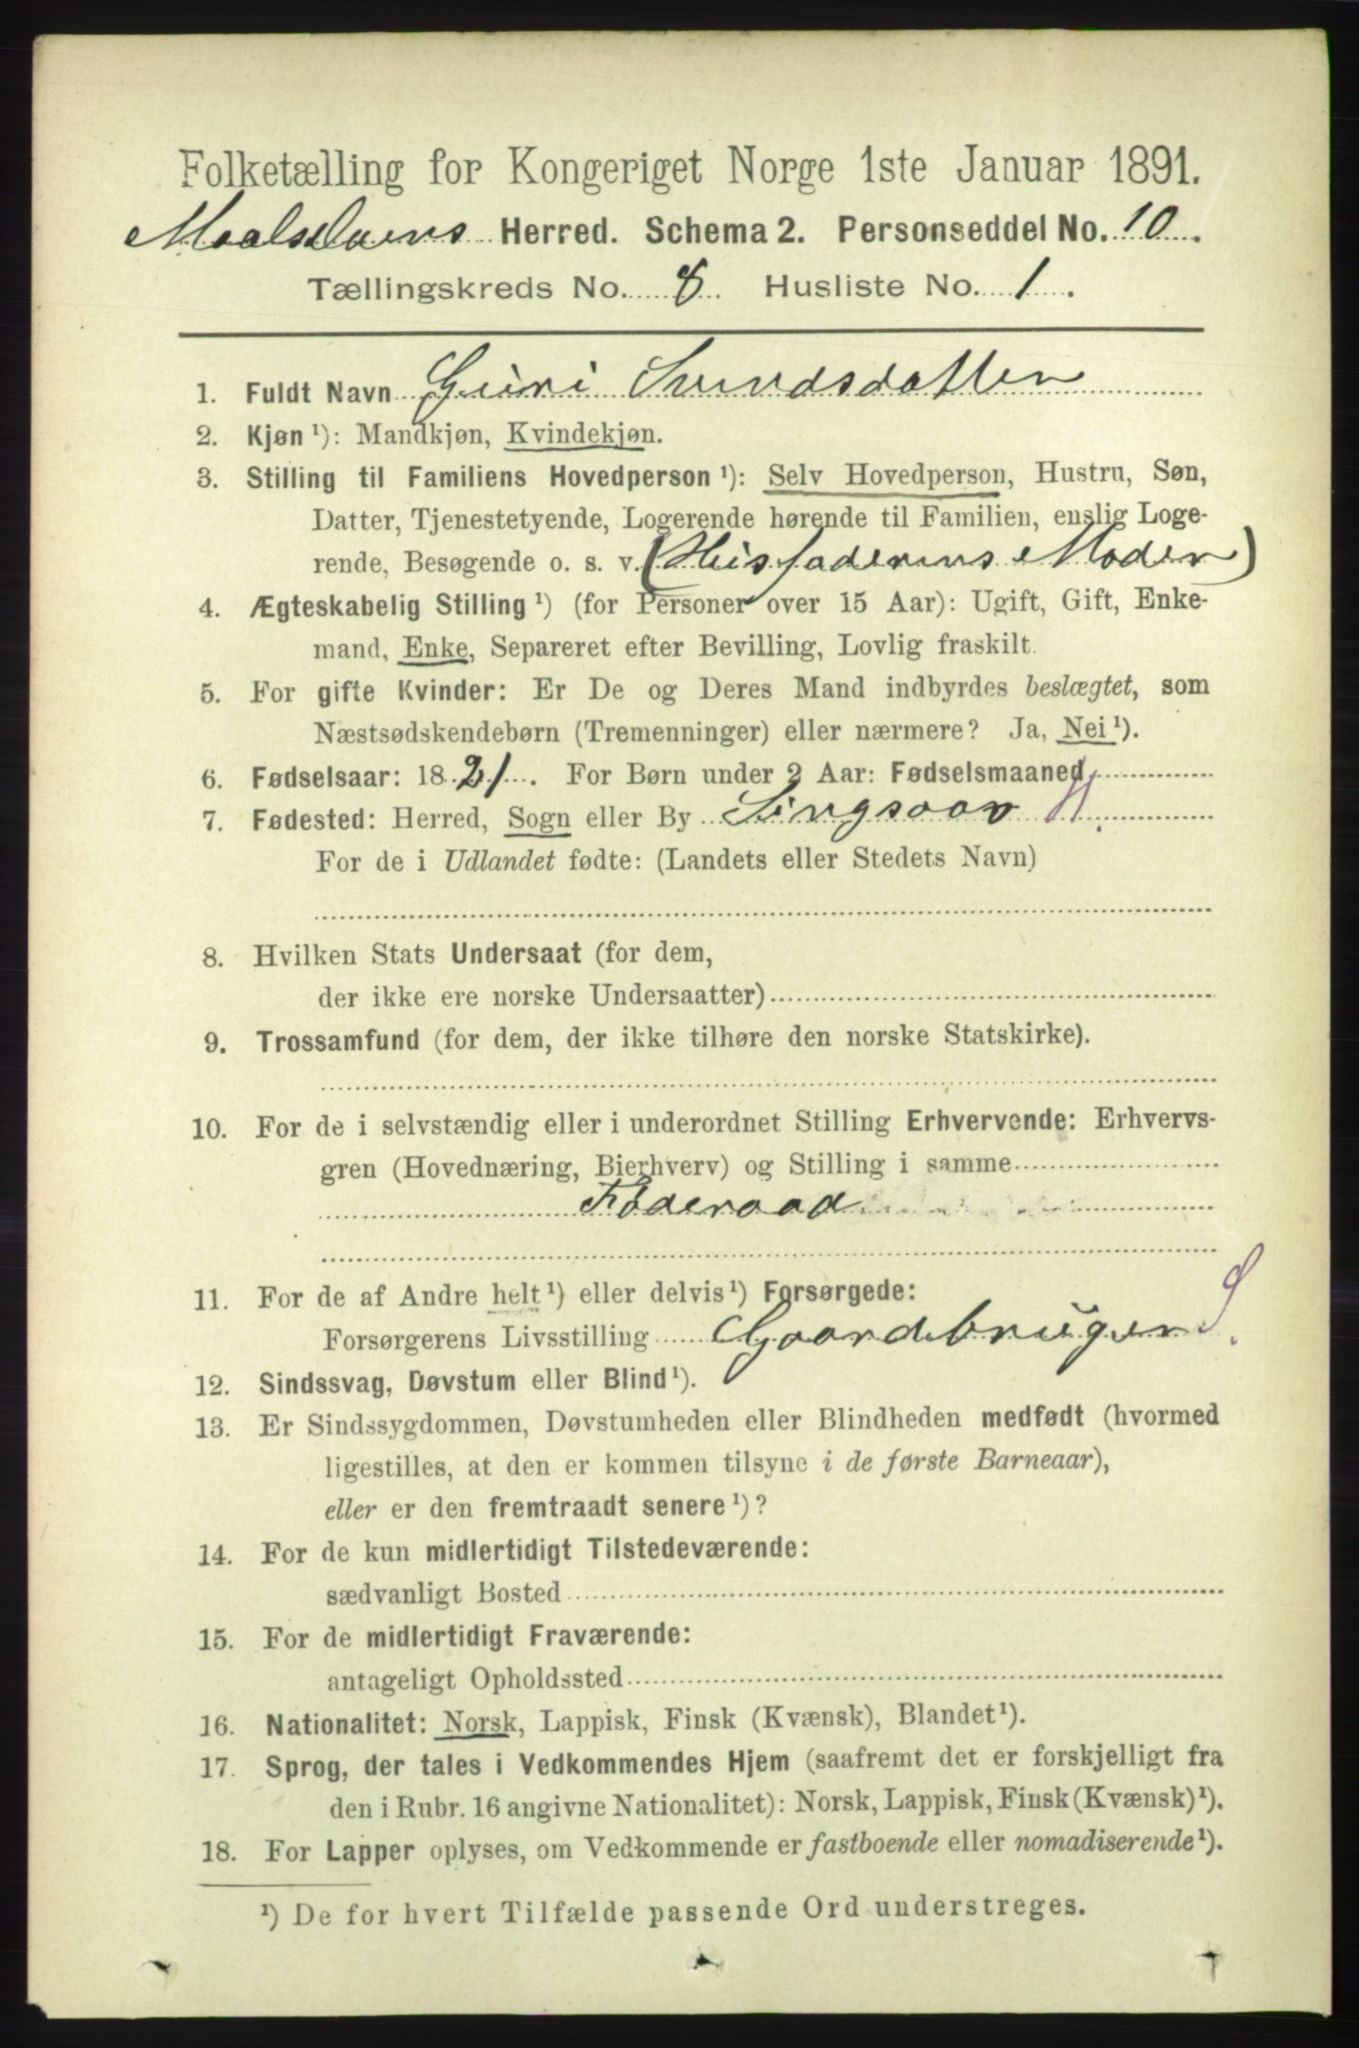 Folketælling for Kongeriget Norge 1ste Januar 1891.
Maalselvens Herred. Schema 2. Personseddel No. 10.
Tællingskreds No. 8. Husliste No. 1.
1. Fuldt Navn Guri Svendsdatter
2. Kjøn ¹): Mandkjøn, Kvindekjøn.
3. Stilling til Familiens Hovedperson ¹): Selv Hovedperson, Hustru, Søn,
Datter, Tjenestetyende, Logerende hørende til Familien, enslig Loge-
rende, Besøgende o. s. v. (Husfaderens Moder)
4. Ægteskabelig Stilling ¹) (for Personer over 15 Aar): Ugift, Gift, Enke-
mand, Enke, Separeret efter Bevilling, Lovlig fraskilt.
5. For gifte Kvinder: Er De og Deres Mand indbyrdes beslægtet, som
Næstsødskendebørn (Tremenninger) eller nærmere? Ja, Nei ¹).
6. Fødselsaar: 1821. For Børn under 2 Aar: Fødselsmaaned
7. Fødested: Herred, Sogn eller By Singsaas H.
For de i Udlandet fødte: (Landets eller Stedets Navn)
8. Hvilken Stats Undersaat (for dem,
der ikke ere norske Undersaatter)
9. Trossamfund (for dem, der ikke tilhøre den norske Statskirke).
10. For de i selvstændig eller i underordnet Stilling Erhvervende: Erhvervs-
gren (Hovednæring, Bierhverv) og Stilling i samme
Føderaad
11. For de af Andre helt ¹) eller delvis ¹) Forsørgede:
Forsørgerens Livsstilling Gaardbruger S.
12. Sindssvag, Døvstum eller Blind ¹).
13. Er Sindssygdommen, Døvstumheden eller Blindheden medfødt (hvormed
ligestilles, at den er kommen tilsyne i de første Barneaar),
eller er den fremtraadt senere ¹)?
14. For de kun midlertidigt Tilstedeværende:
sædvanligt Bosted
15. For de midlertidigt Fraværende:
antageligt Opholdssted
16. Nationalitet: Norsk, Lappisk, Finsk (Kvænsk), Blandet ¹).
17. Sprog, der tales i Vedkommendes Hjem (saafremt det er forskjelligt fra
den i Rubr. 16 angivne Nationalitet): Norsk, Lappisk, Finsk (Kvænsk) ¹).
18. For Lapper oplyses, om Vedkommende er fastboende eller nomadiserende ¹).
¹) De for hvert Tilfælde passende Ord understreges.